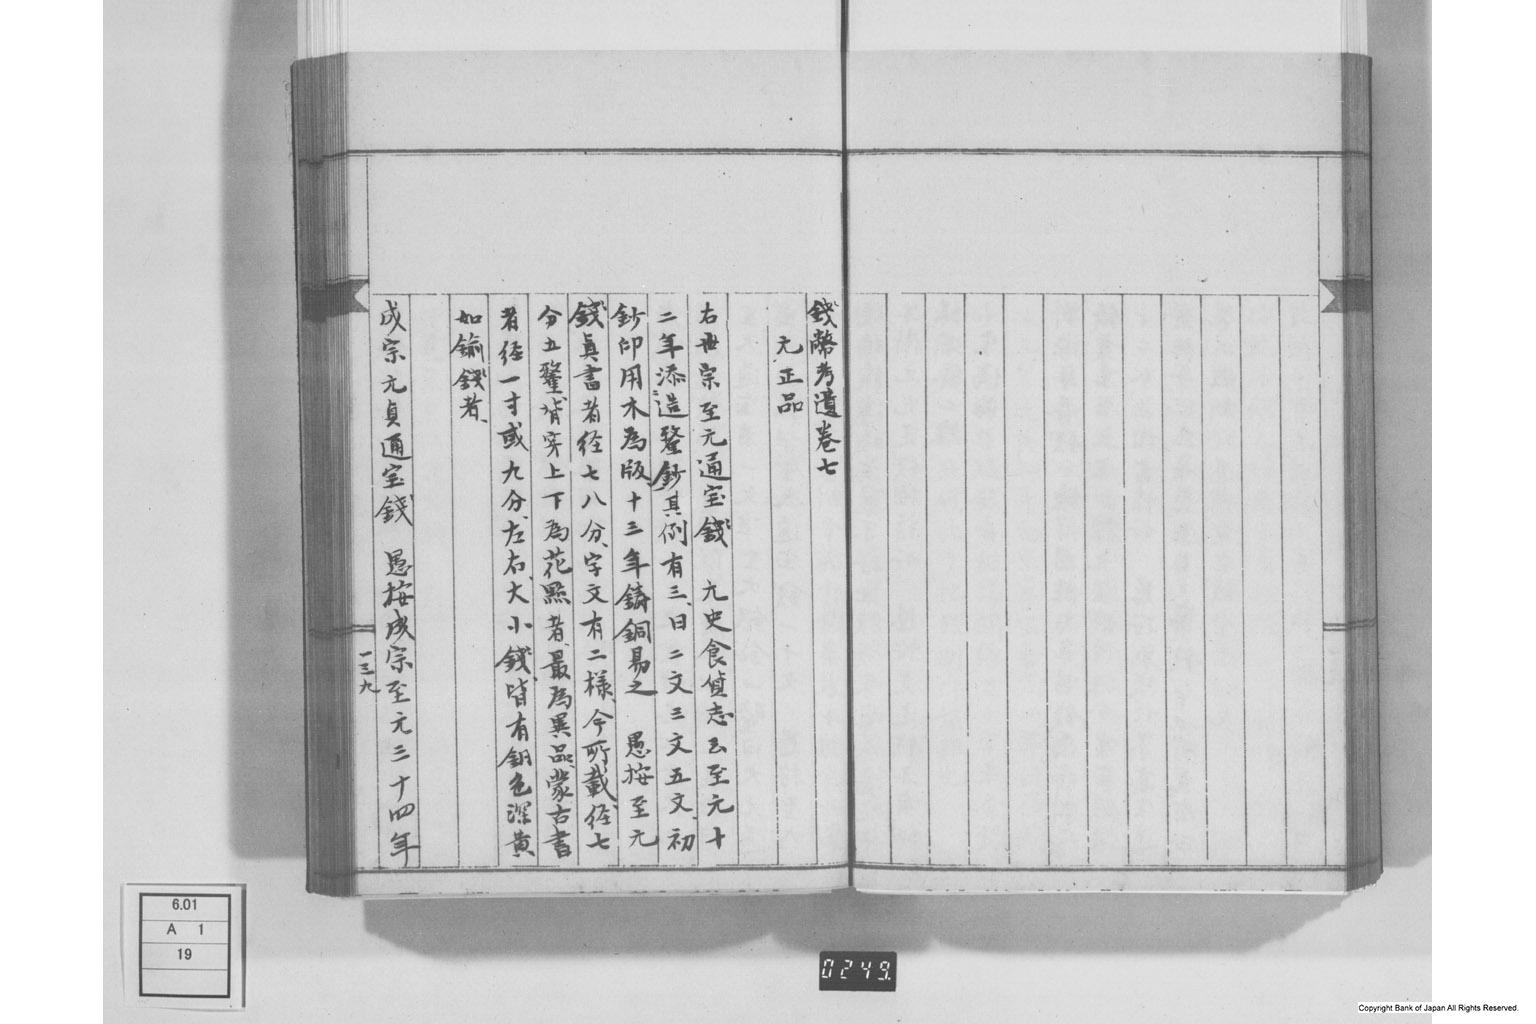 錢幣考遺卷七
元正品
右世宗至元通宝錢　元史食貨志云至元十
二年添造釐鈔其例有三、曰二文三文五文、初
鈔印用木為版、十三年鑄銅易之　愚按至元
錢真書者径七八分、字文有二様、今所載、径七
分五釐、背穿上下為花點者、最為異品、蒙古書
者径一寸或九分、左右、大小錢、皆有銅色深黄
如鍮錢者、
成宗元貞通宝錢　愚按成宗至元三十四年
一三九
6.01
A 1
19
0249
Copyright Bank of Japan All Rights Reserved.